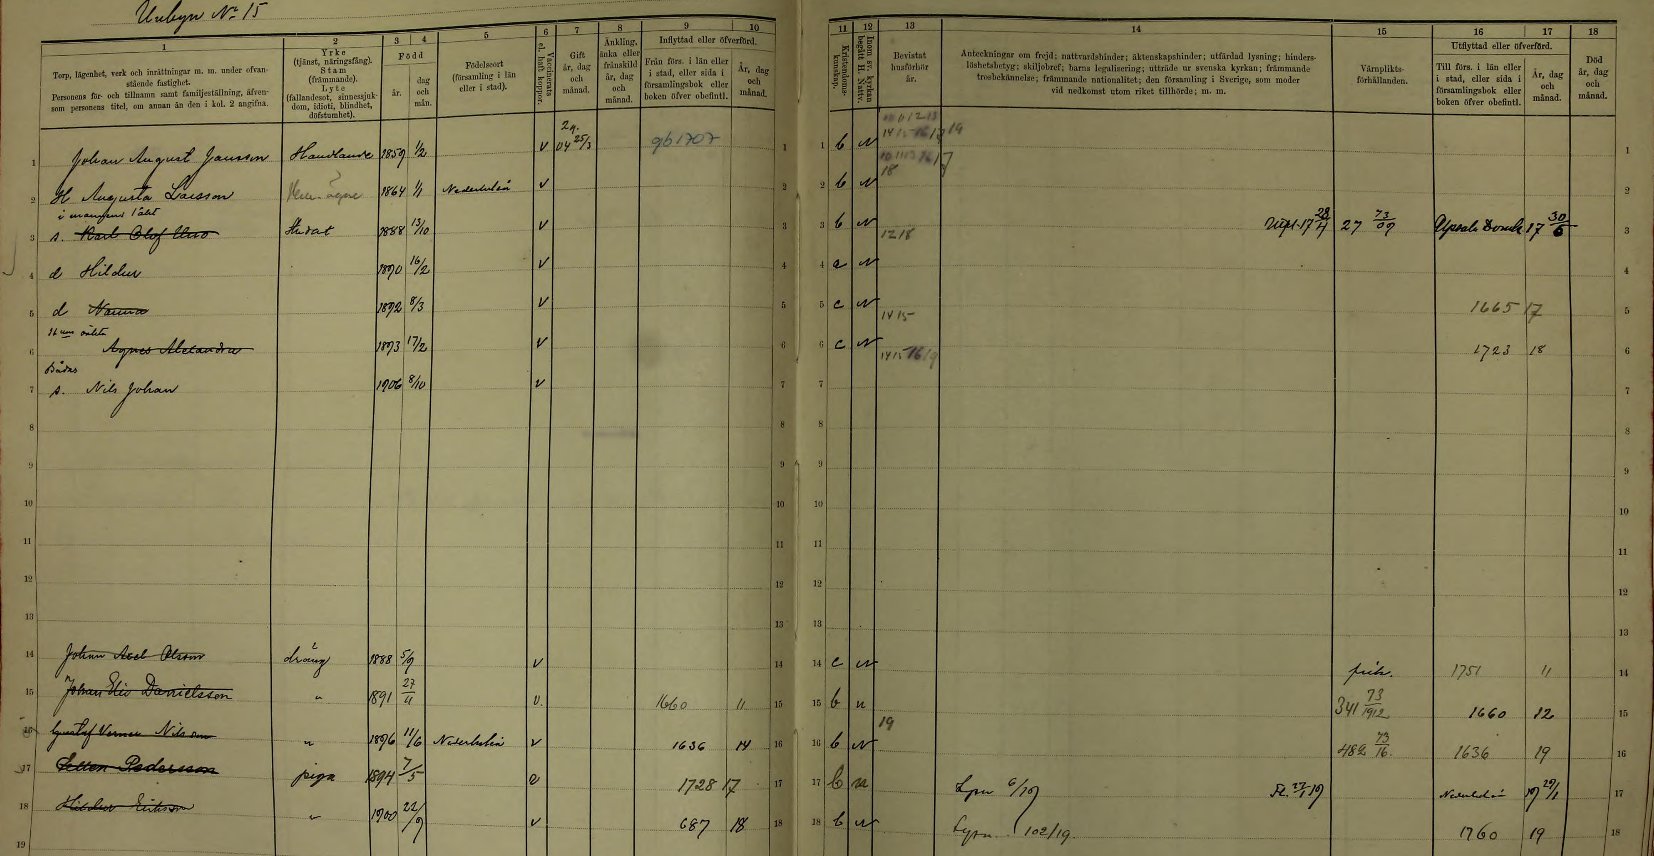 Unbyn No 15
1 2 3 4 5 6 7 8 9 10
Torp, lägenhet, verk och inrättningar m. m. under ofvan-
stående fastighet.
Personens för- och tillnamn samt familjeställning, äfven-
som personens titel, om annan än den i kol. 2 angifna.
Yrke
(tjänst, näringsfång).
Stam
(främmande).
Lyte
(fallandesot, sinnessjuk-
dom, idioti, blindhet,
döfstumhet).
Född
år.
dag
och
mån.
Födelseort
(församling i län
eller i stad).
Vaccinerats
el. haft koppor.
Gift
år, dag
och
månad.
Änkling,
änka eller
frånskild
år, dag
och
månad.
Inflyttad eller öfverförd.
Från förs. i län eller
i stad, eller sida i
församlingsbok eller
boken öfver obefintl.
År, dag
och
månad.
1 Johan August Jansson Handlande 1859 1/2 v 2 g. 04 25/3 gb 1707 1
2 H Augusta Larsson 1864 1/1 Nederluleå v 2
3 s. Karl Olof Uno Studat 1888 13/10 v 3
4 d Hildur 1890 16/2 v 4
5 d Nanna 1892 8/3 v 5
6 Agnes Alexandra 1893 17/2 v 6
Bådas
7 s. Nils Johan 1906 8/10 v 7
8 8
9 9
10 10
11 11
12 12
13 13
14 Johan Axel Olsson dräng 1888 5/9 v 14
15 Johan Elis Danielsson " 1891 27/11 v. 1660 11 15
16 Gustaf Verner Nilsson " 1896 11/6 Nederluleå v 1636 14 16
17 Ellen Pedersson piga 1894 7/5 1728 17 17
18 Hildur Eriksson " 1900 22/9 v 687 18 18
19
11 12 13 14 15 16 17 18
Kristendoms-
kunskap.
Inom sv. kyrkan
begått H. Nattv.
Bevistat
husförhör
år.
Anteckningar om frejd; nattvardshinder; äktenskapshinder; utfärdad lysning; hinders-
löshetsbetyg; skiljobref; barns legalisering; utträde ur svenska kyrkan; främmande
trosbekännelse; främmande nationalitet; den församling i Sverige, som moder
vid nedkomst utom riket tillhörde; m. m.
Värnplikts-
förhållanden.
Utflyttad eller öfverförd.
Till förs. i län eller
i stad, eller sida i
församlingsbok eller
boken öfver obefintl.
År, dag
och
månad.
Död
år, dag
och
månad.
1 b n 14 15 16 17 19 1
2 b n 18 2
3 b n 12 18 17 28/4 27 73/09 Upsala Domk 17 30/6 3
4 a n 4
5 c n 14 15 1665 17 5
6 c n 14 15 16 19 1723 18 6
7 7
8 8
9 9
10 10
11 11
12 12
13 13
14 c n 1751 11 14
15 b n 341 73/1912 1660 12 15
16 b n 19 482 73/16 1636 19 16
17 b n Lysn 6/19 Nederluleå 19 17
18 b n Lysn 102/19. 1760 19 18